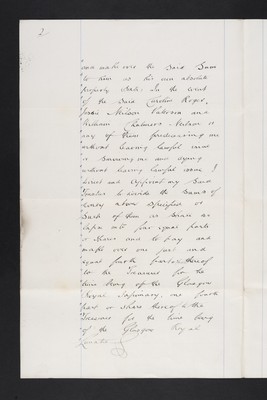 2
and make over the said Sum
to him as his own absolute
property Sixth. In the event
of the Said Caroline Roger,
Jessie Neilson Paterson and
William Chalmers Neilson or
any of them predeceasing me
without leaving lawful issue
or Surviving me and dying
without leaving lawful issue I
direct and appoint my Said
Trustee to divide the Sums of
money above Specified or
Such of them as Shall so
lapse into four equal parts
or Shares and to pay and
make over one part and
equal fourth part thereof
to the Treasurer for the
time being of the Glasgow
Royal Infirmary, one fourth
part or share thereof to the
Treasurer for the time being
of the Glasgow Royal
Lunatic